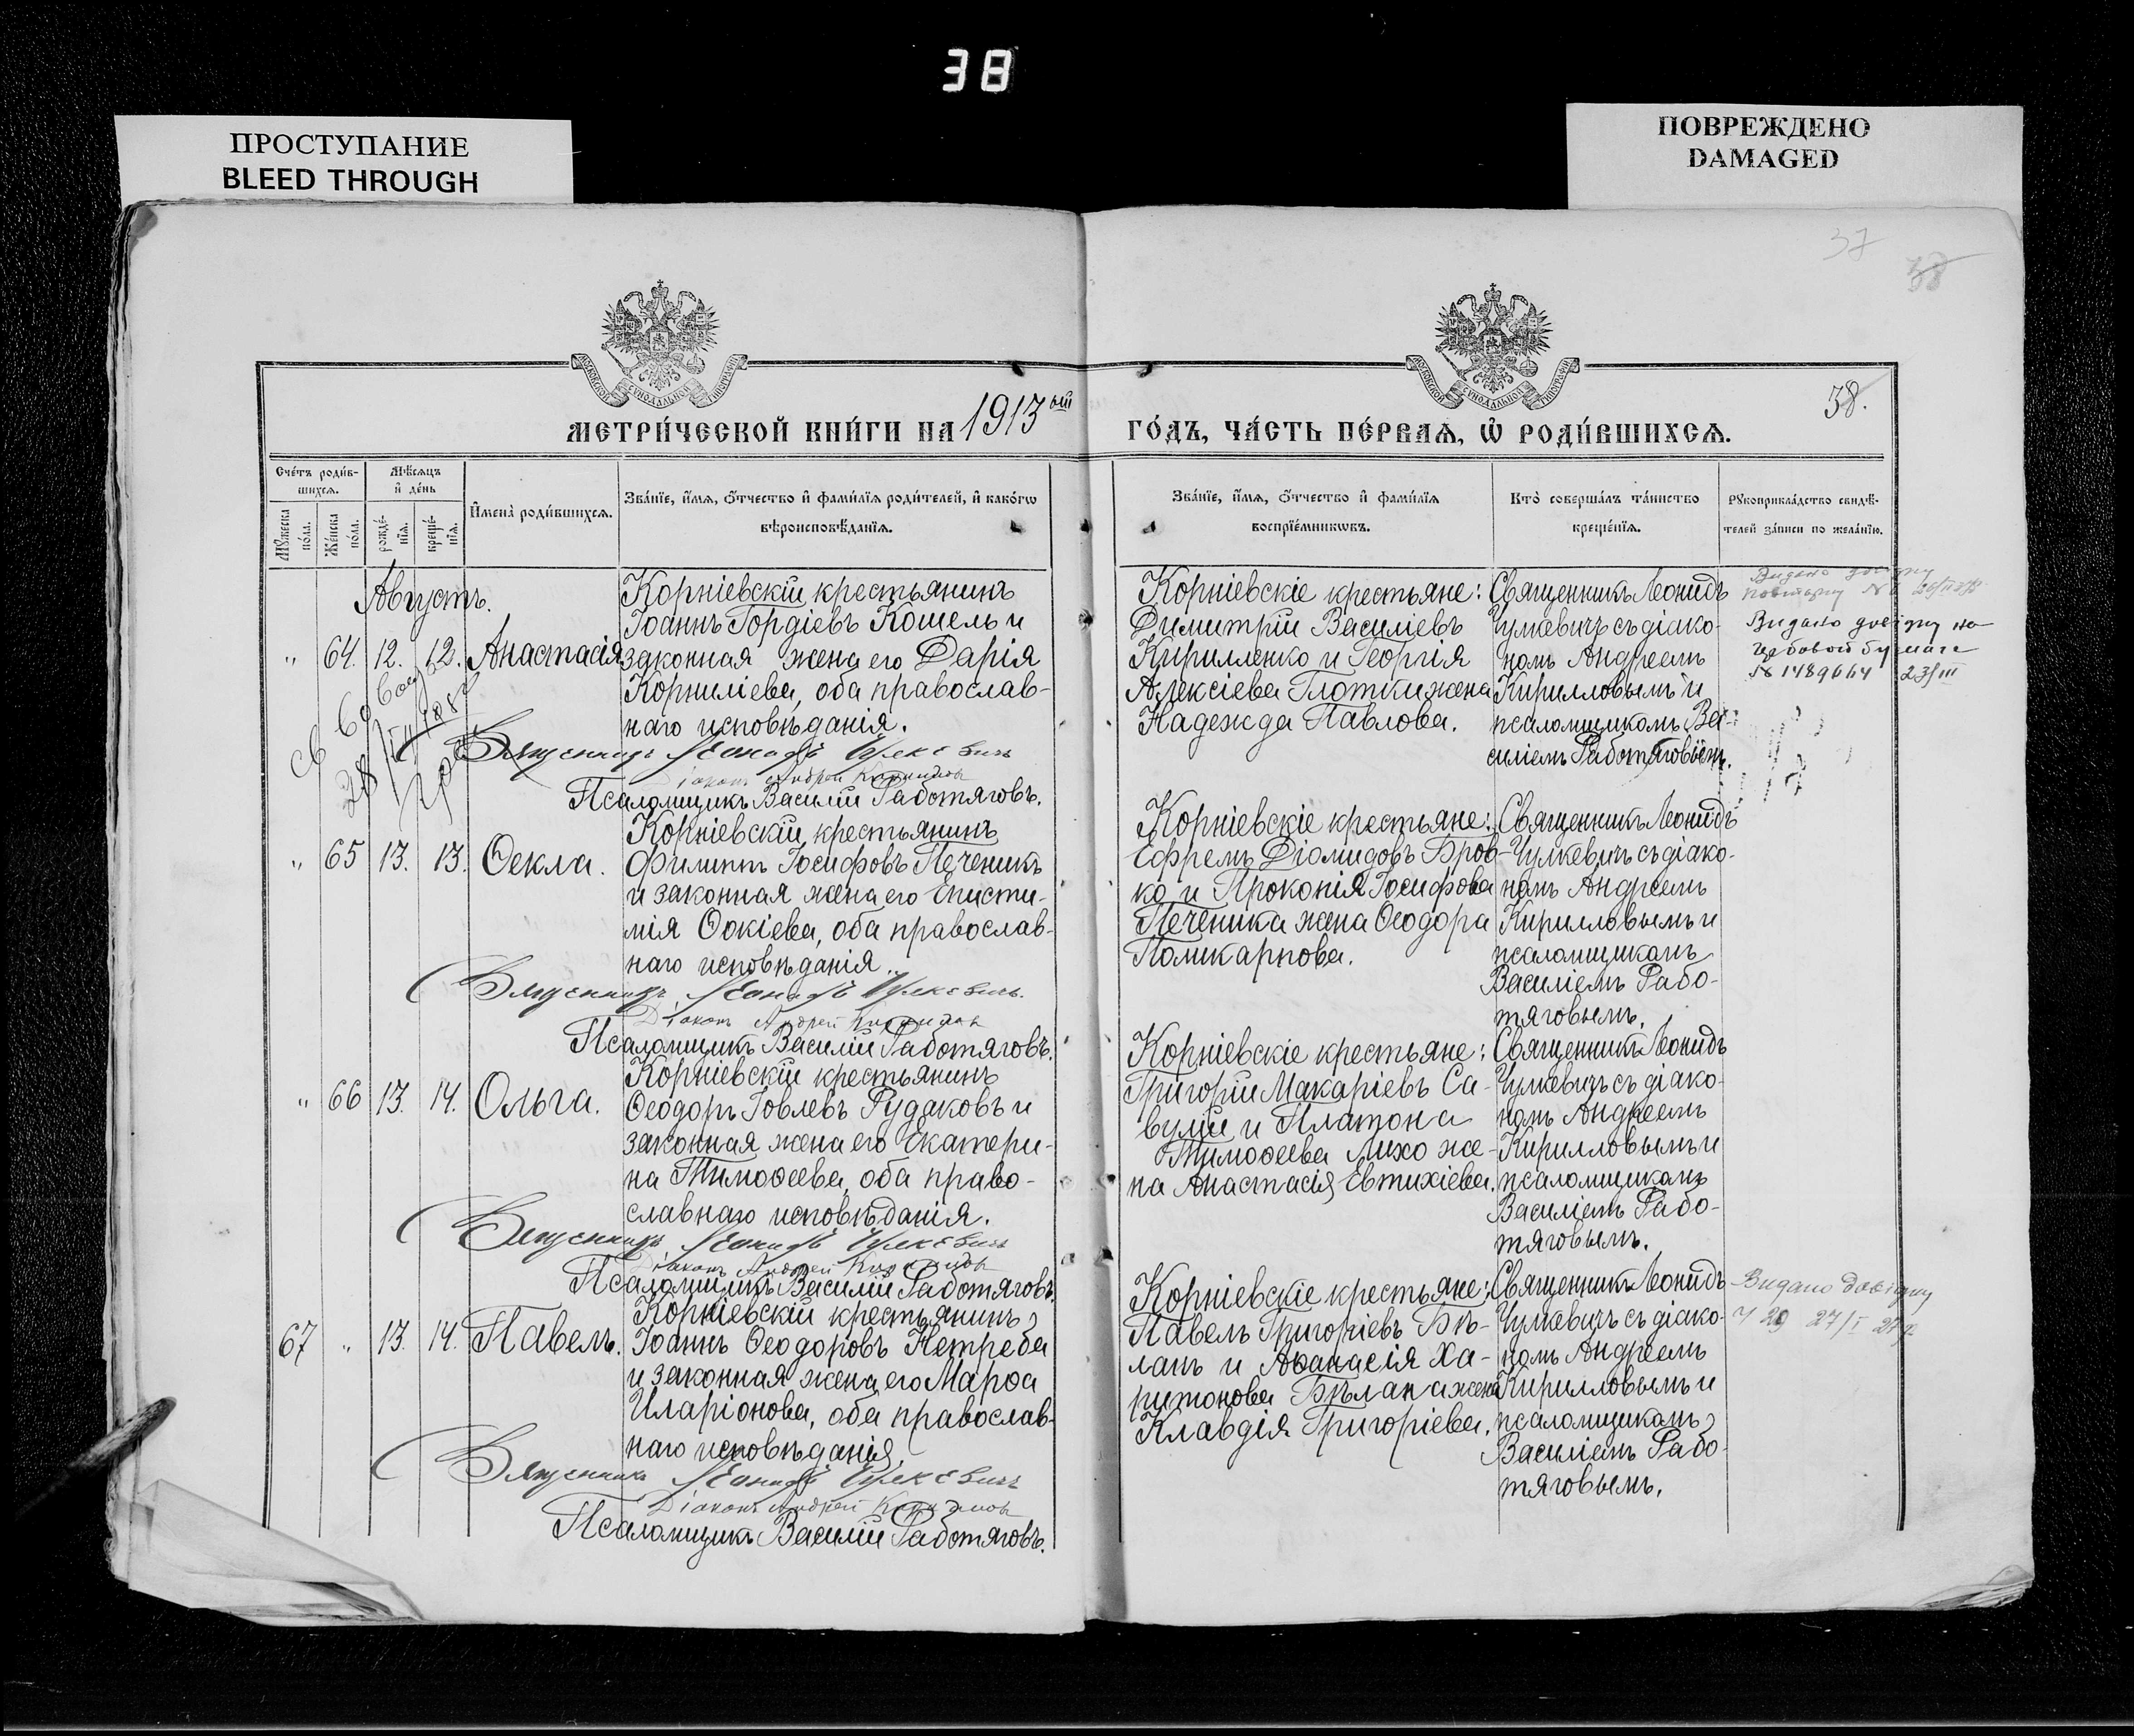 38
ПРОСТУПАНИЕ
BLEED THROUGH
ПОВРЕЖДЕНО
DAMAGED
37
38
38.
МЕТРИ́ЧЕСКОЙ КНИ́ГИ НА 1913 ый ГО́ДЪ, ЧА́СТЬ ПЕ́РВАѦ, Ѡ҆ РОДИ́ВШИХСѦ.
Сче́тъ роди́в-
шихсѧ.
Мѣ́сѧцъ
и҆ де́нь
Мꙋ́жеска
по́ла.
Же́нска
по́ла.
рожде́-
нїѧ.
креще́-
нїѧ.
И҆мена̀ роди́вшихсѧ.
Зва́нїе, и҆́мѧ, ѻ҆́тчество и҆ фами́лїѧ роди́телей, и҆ како́гѡ
вѣроисповѣ́данїѧ.
Зва́нїе, и҆́мѧ, ѻ҆́тчество и҆ фами́лїѧ
воспрїе́мникѡвъ.
Кто̀ соверша́лъ та́инство
креще́нїѧ.
Рꙋкоприкла́дство свидѣ́-
телей за́писи по жела́нїю.
Августъ.
" 64. 12. 12. Анастасія
Корніевскій крестьянинъ
Іоаннъ Гордіевъ Кошель и
законная жена его Дарія
Корниліева, оба православ-
наго исповѣданія.
Священникъ Леонидъ Чулкевичъ
Діаконъ Андрей Кириллов
Псаломщикъ Василій Работяговъ.
Корніевскіе крестьяне:
Димитрій Василіевъ
Кирилленко и Георгія
Алексіева Глотки жена
Надежда Павлова.
Священникъ Леонидъ
Чулкевичъ съ діако-
номъ Андреемъ
Кирилловымъ и
псаломщикомъ Ва-
силіемъ Работяговымъ.
Видано довідку на
№ 1489664 23/III
" 65 13. 13. Ѳекла.
Корніевскій крестьянинъ
Филиппъ Іосифовъ Печеникъ
и законная жена его Еписти-
мія Фокіева, оба православ-
наго исповѣданія.
Священникъ Леонидъ Чулкевичъ.
Діаконъ Андрей Кириллов
Псаломщикъ Василій Работяговъ.
Корніевскіе крестьяне:
Ефремъ Діомидовъ Бров-
ко и Прокопія Іосифова
Печеника жена Ѳеодора
Поликарпова.
Священникъ Леонидъ
Чулкевичъ съ діако-
номъ Андреемъ
Кирилловымъ и
псаломщикомъ
Василіемъ Рабо-
тяговымъ.
" 66 13. 14. Ольга.
Корніевскій крестьянинъ
Ѳеодоръ Іовлевъ Рудаковъ и
законная жена его Екатери-
на Тимоѳеева, оба право-
славнаго исповѣданія.
Священникъ Леонидъ Чулкевичъ
Діаконъ Андрей Кириллов
Псаломщикъ Василій Работяговъ.
Корніевскіе крестьяне:
Григорій Макаріевъ Са-
вулій и Платона
Тимоѳеева Лихо же-
на Анастасія Евтихіева.
Священникъ Леонидъ
Чулкевичъ съ діако-
номъ Андреемъ
Кирилловымъ и
псаломщикомъ
Василіемъ Рабо-
тяговымъ.
67 " 13. 14. Павелъ.
Корніевскій крестьянинъ
Іоаннъ Ѳеодоровъ Нетреба
и законная жена его Марѳа
Иларіонова, оба православ-
наго исповѣданія.
Священникъ Леонидъ Чулкевичъ
Діаконъ Андрей Кириллов
Псаломщикъ Василій Работяговъ.
Корніевскіе крестьяне:
Павелъ Григоріевъ Бѣ-
лан и Аѳанасія Ха-
ритонова Бѣлана жена
Клавдія Григоріева.
Священникъ Леонидъ
Чулкевичъ съ діако-
номъ Андреемъ
Кирилловымъ и
псаломщикомъ
Василіемъ Рабо-
тяговымъ.
Видано довідку
29 27/I